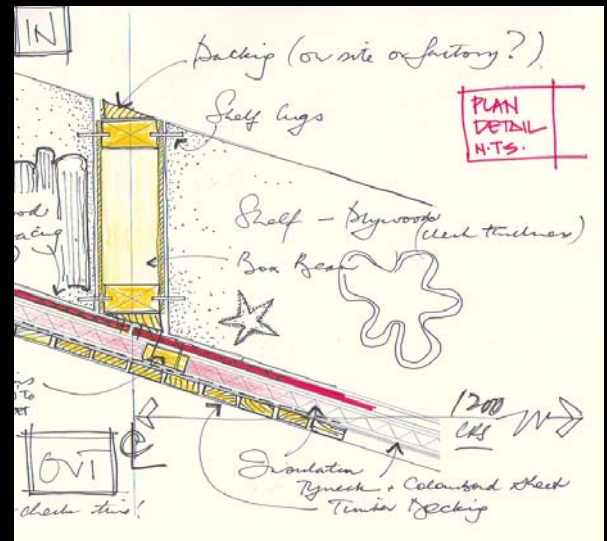 IN
Packing (on site or factory?)
Shelf lugs
PLAN
DETAIL
N.T.S.
Shelf – Plywood (check thickness)
Box Beam
1200
CRS
OUT
check this!
Insulation
Tyveck + Colourbond sheet
Timber Decking